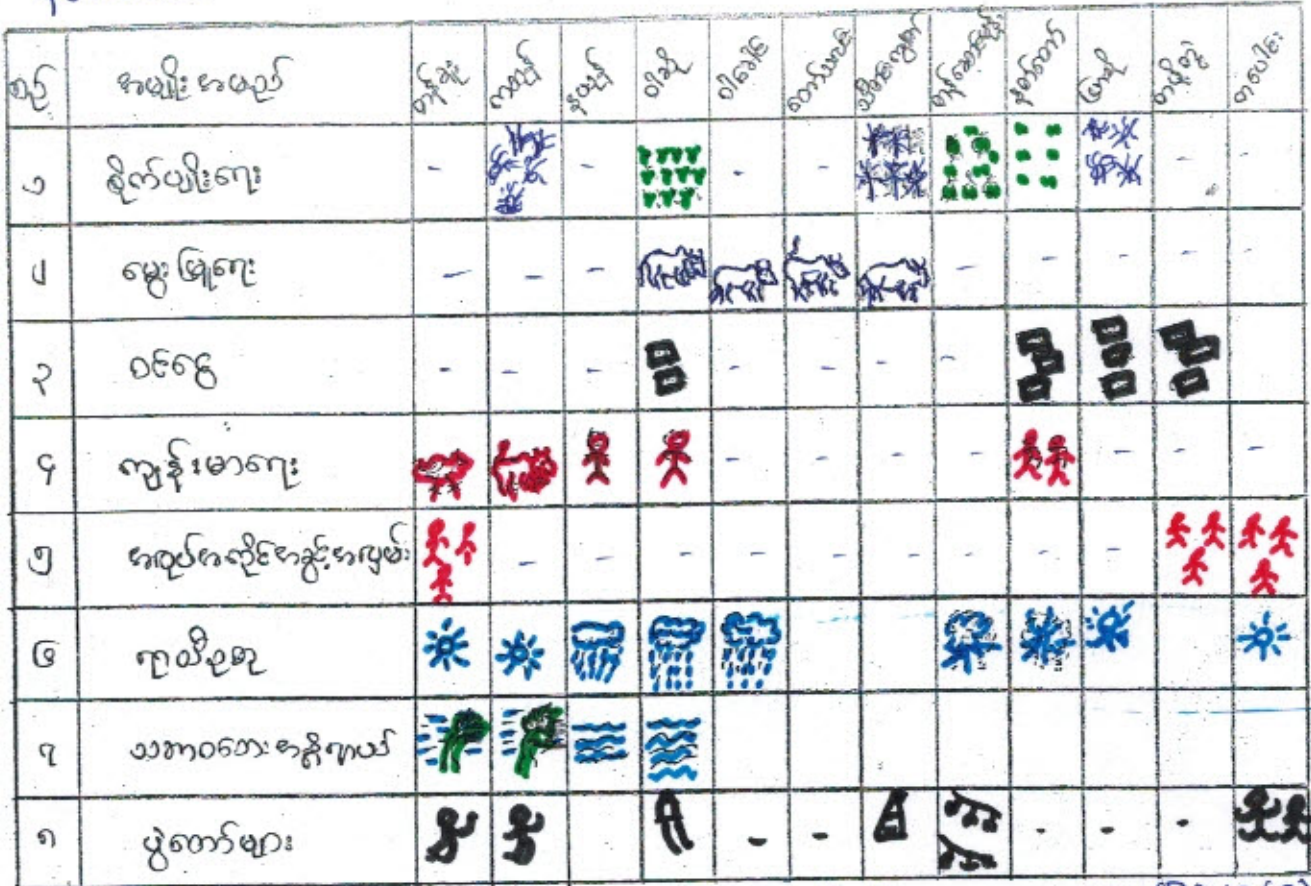 စဉ် အမျိုးအမည် တန်ခူး ကဆုန် နယုန် ဝါဆို ဝါခေါင် တော်သလင်း သီတင်းကျွတ် တန်ဆောင်မုန်း နတ်တော် ပြာသို တပို့တွဲ တပေါင်း
၁ စိုက်ပျိုးရေး - - - - -
၂ မွေးမြူရေး - - - - - - - -
၃ ဝင်ငွေ - - - - - - -
၄ ကျန်းမာရေး - - - - - - -
၅ အလုပ်အကိုင်အခွင့်အလမ်း - - - - - - - - -
၆ ရာသီဥတု
၇ သဘာဝဘေးအန္တရာယ်
၈ ပွဲတော်များ - - - - -